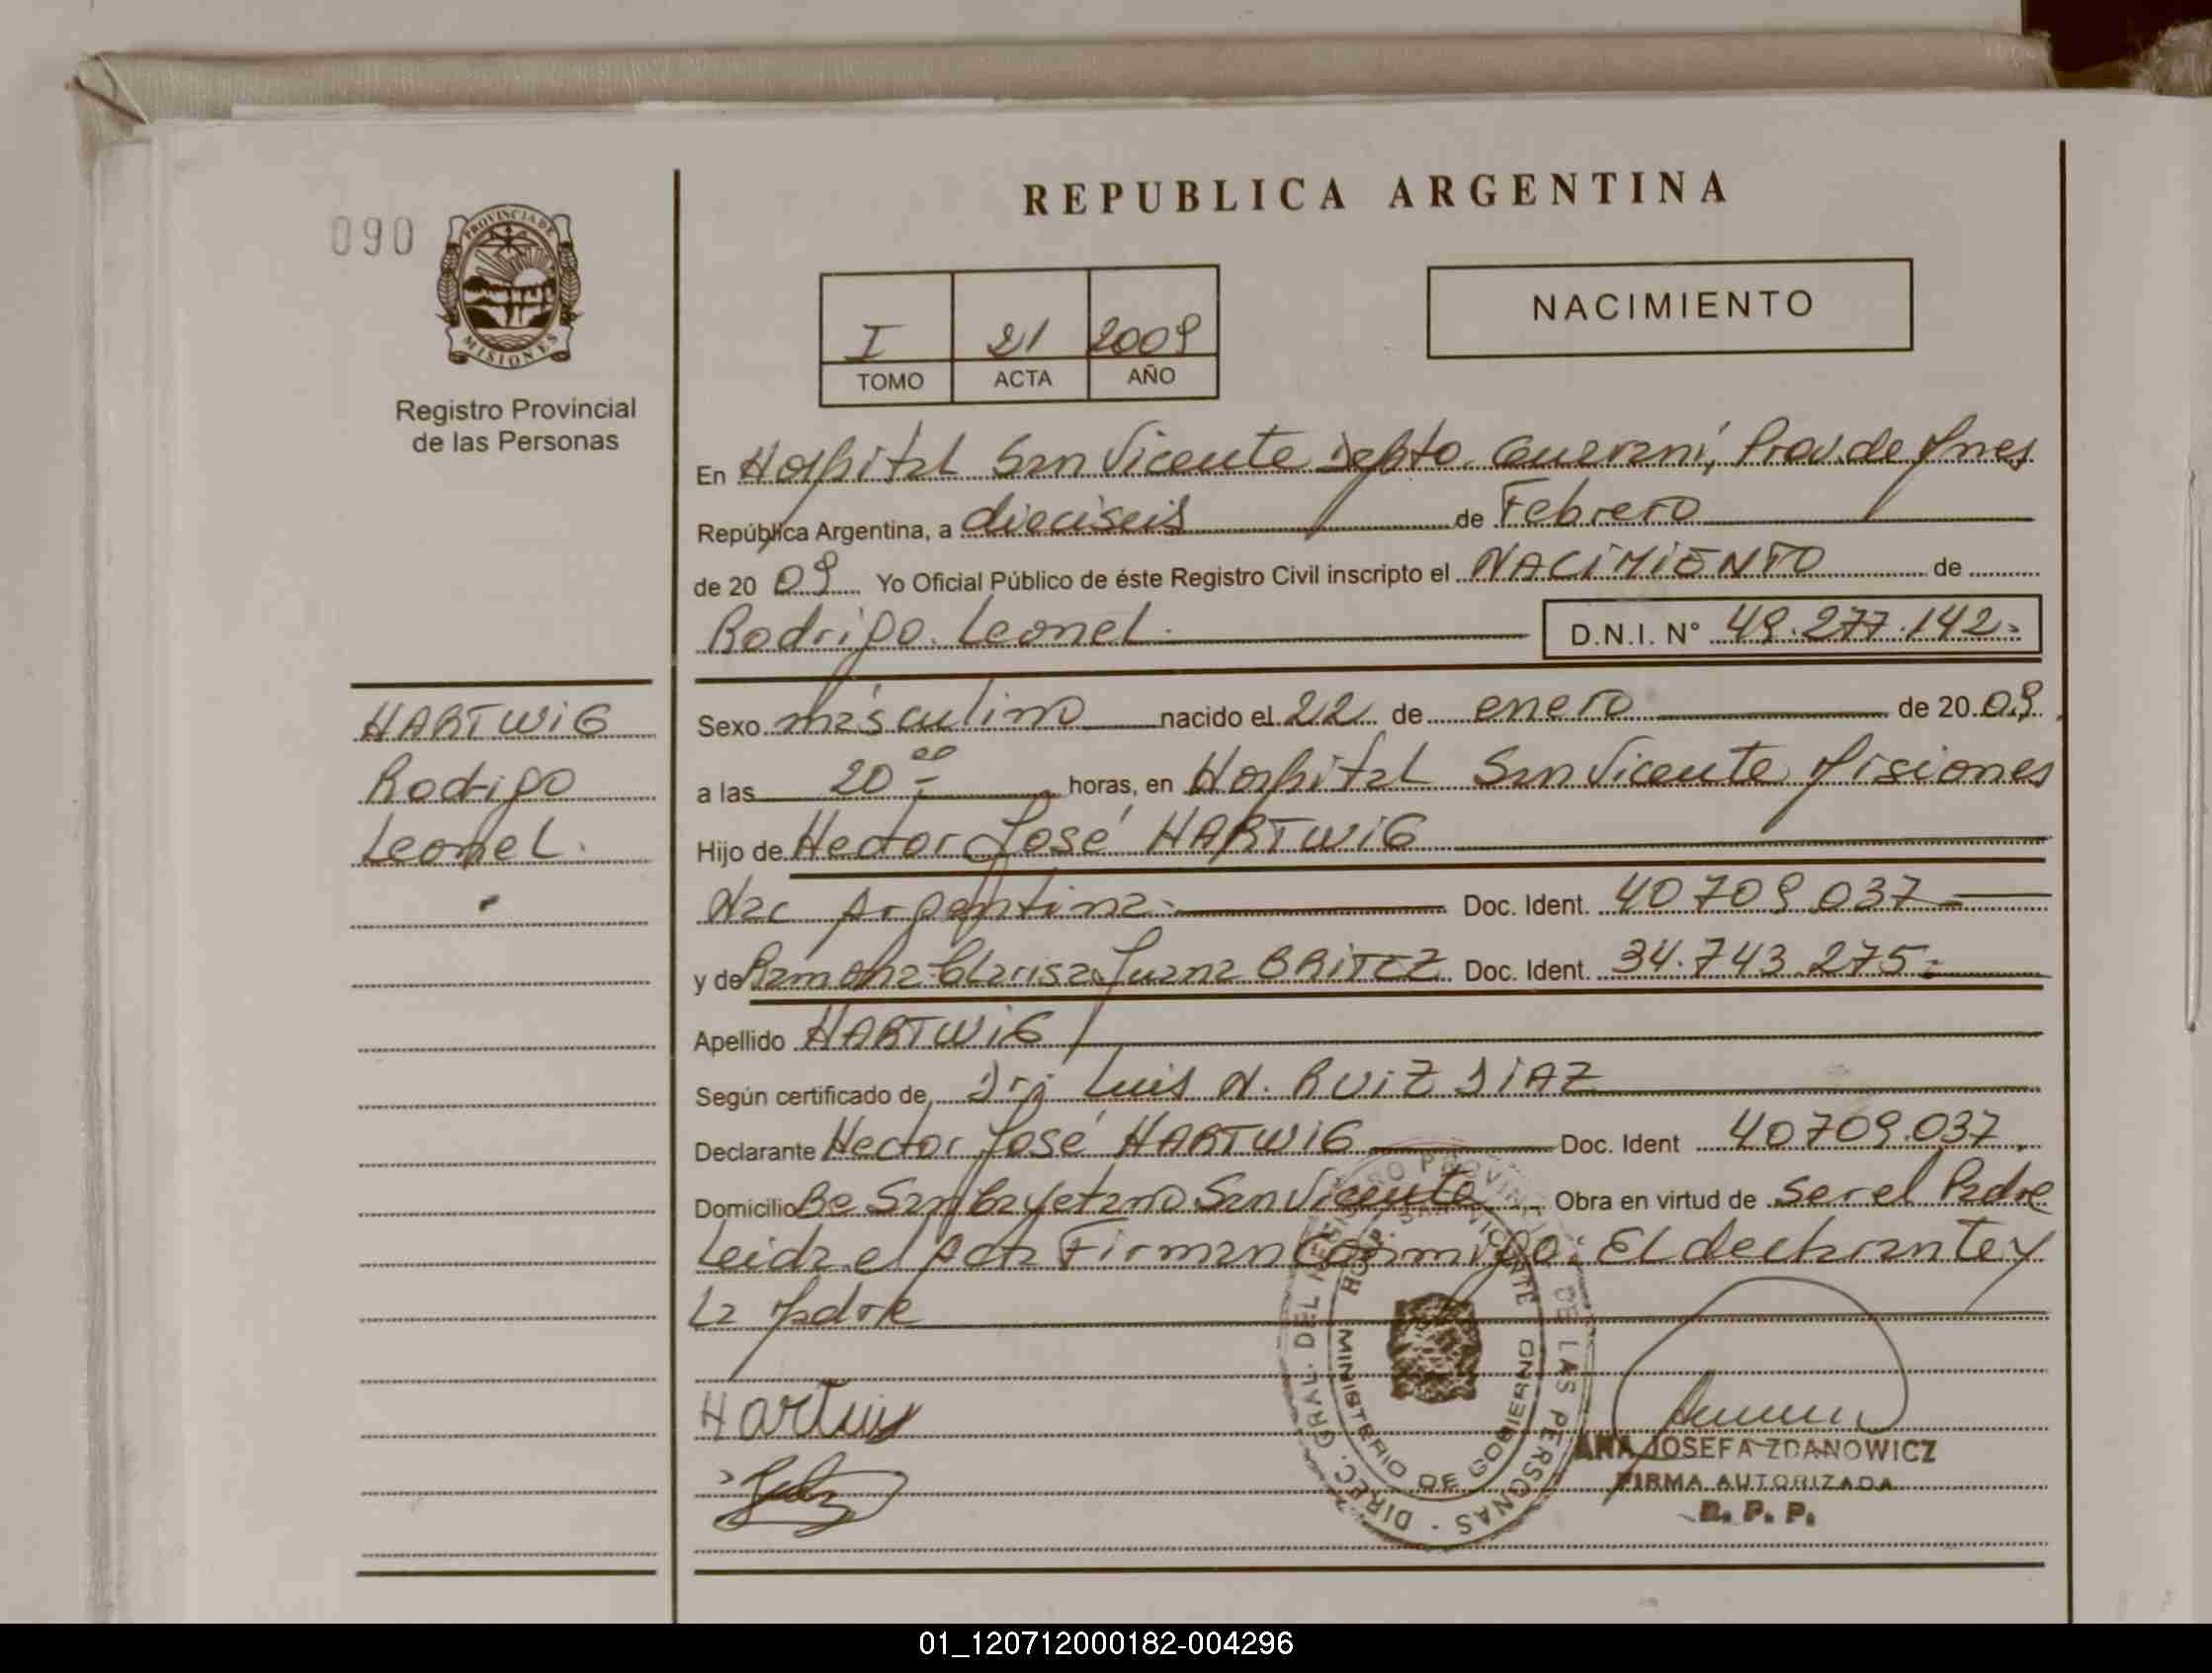 REPUBLICA ARGENTINA
090
PROVINCIA DE
MISIONES
Registro Provincial
de las Personas
NACIMIENTO
I 21 2009
TOMO ACTA AÑO
En Hospital San Vicente Depto. Guarani, Prov. de Mnes
República Argentina, a dieciseis de Febrero
de 20 09 Yo Oficial Público de éste Registro Civil inscripto el NACIMIENTO de
Rodrigo Leonel. D.N.I. N° 49.277.142.-
HARTWIG
Rodrigo
Leonel.
Sexo masculino nacido el 22 de enero de 20 09.
a las 20 00 horas, en Hospital San Vicente Misiones
Hijo de Hector José HARTWIG
Nac Argentina.- Doc. Ident. 40709.037-
y de Ramona Clarisa Juana BRITEZ Doc. Ident. 34.743.275-
Apellido HARTWIG
Según certificado de Dr. Luis N. RUIZ DIAZ
Declarante Hector José HARTWIG Doc. Ident 40709.037
Domicilio Bº San Cayetano San Vicente Obra en virtud de ser el Padre
Leida el Acta Firman Conmigo El declarante y
La Madre
Hartwig
DIREC. GRAL. DEL REGISTRO PROVINCIAL DE LAS PERSONAS
HOSP. SAN VICENTE
MINISTERIO DE GOBIERNO
ANA JOSEFA ZDANOWICZ
FIRMA AUTORIZADA
R. P. P.
01_120712000182-004296